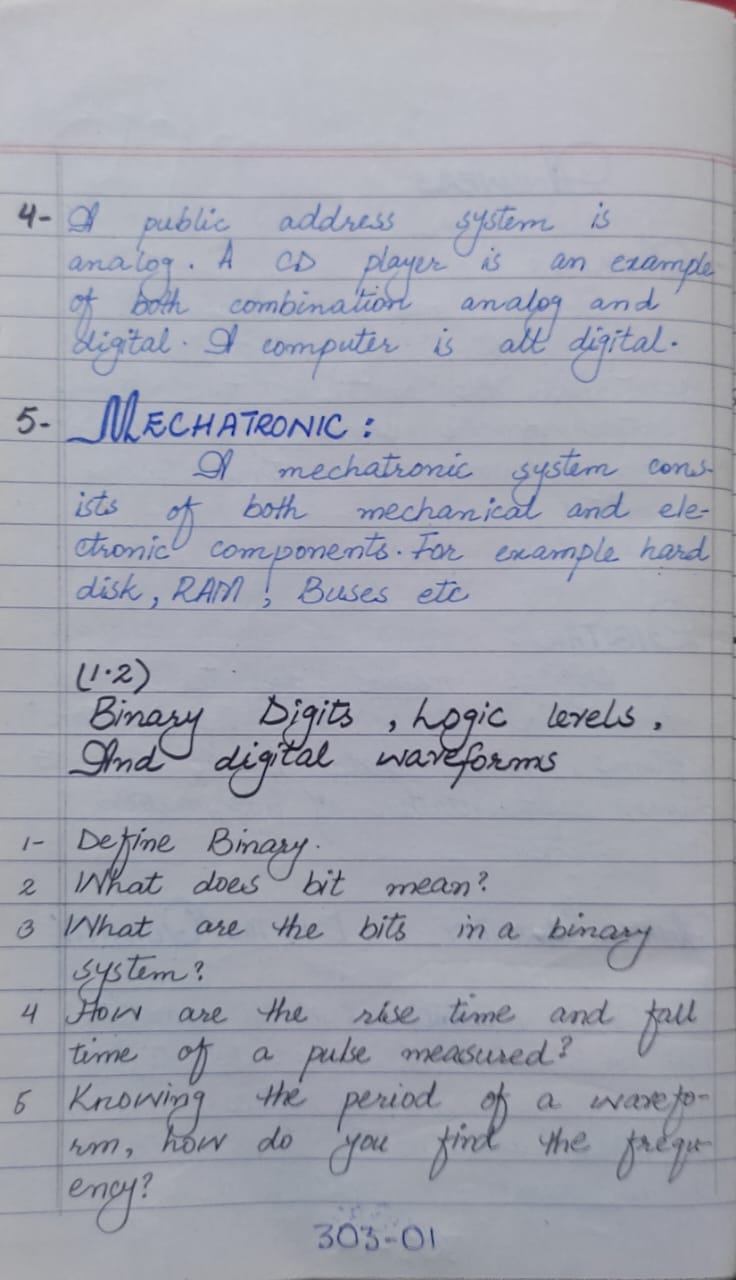 4- A public address system is
analog. A CD player is an example
of both combination analog and
digital. A computer is all digital.
5- MECHATRONIC:
A mechatronic system cons-
ists of both mechanical and ele-
ctronic components. For example hard
disk, RAM, Buses etc
(1.2)
Binary Digits, Logic levels,
And digital waveforms
1- Define Binary.
2 What does bit mean?
3 What are the bits in a binary
system?
4 How are the rise time and fall
time of a pulse measured?
5 Knowing the period of a wavefo-
rm, how do you find the frequ-
ency?
303-01